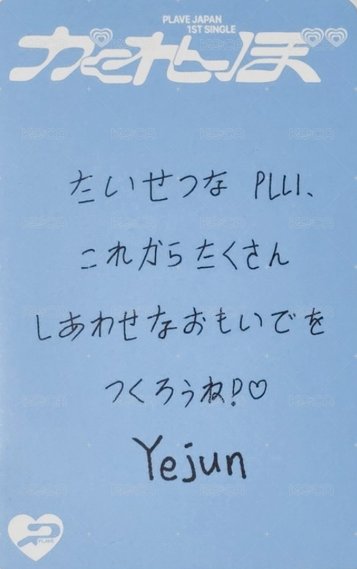 PLAVE JAPAN
1ST SINGLE
かくれんぼ
たいせつな PLLI、
これからたくさん
しあわせなおもいでを
つくろうね!♡
Yejun
PLAVE